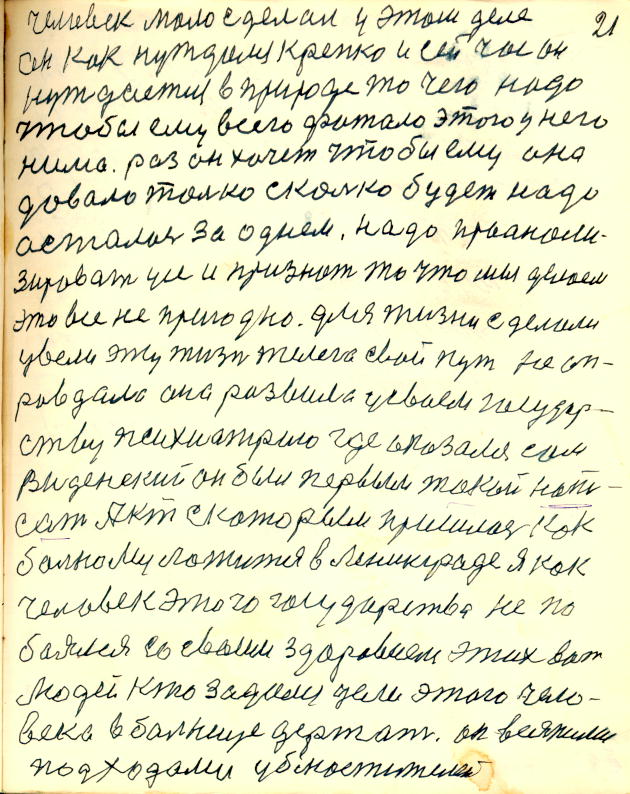 21
человек мало сделал у этом деле
он как нуждался крепко и сей час он
нуждается в природе то чего надо
чтобы ему всего фатало этого у него
нима. раз он хочет чтобы ему она
довала толко сколко будет надо
астались за однем, надо проанали-
зироват усе и признат то что мы делаем
это все не пригодно. для жизни сделали
увели эту жизн телега свой пут не оп-
равдала она развила у своем государ-
ству психиатрию где оказался сам
Виденский он был первым такой напи-
сат Якт скоторым пришлось как
балному ложится в Ленинграде я как
человек этого государства не по
баялся со своим здоровием этих вот
людей кто задался цели этого чело-
века в балнице держат. он всякими
подходами убностителей